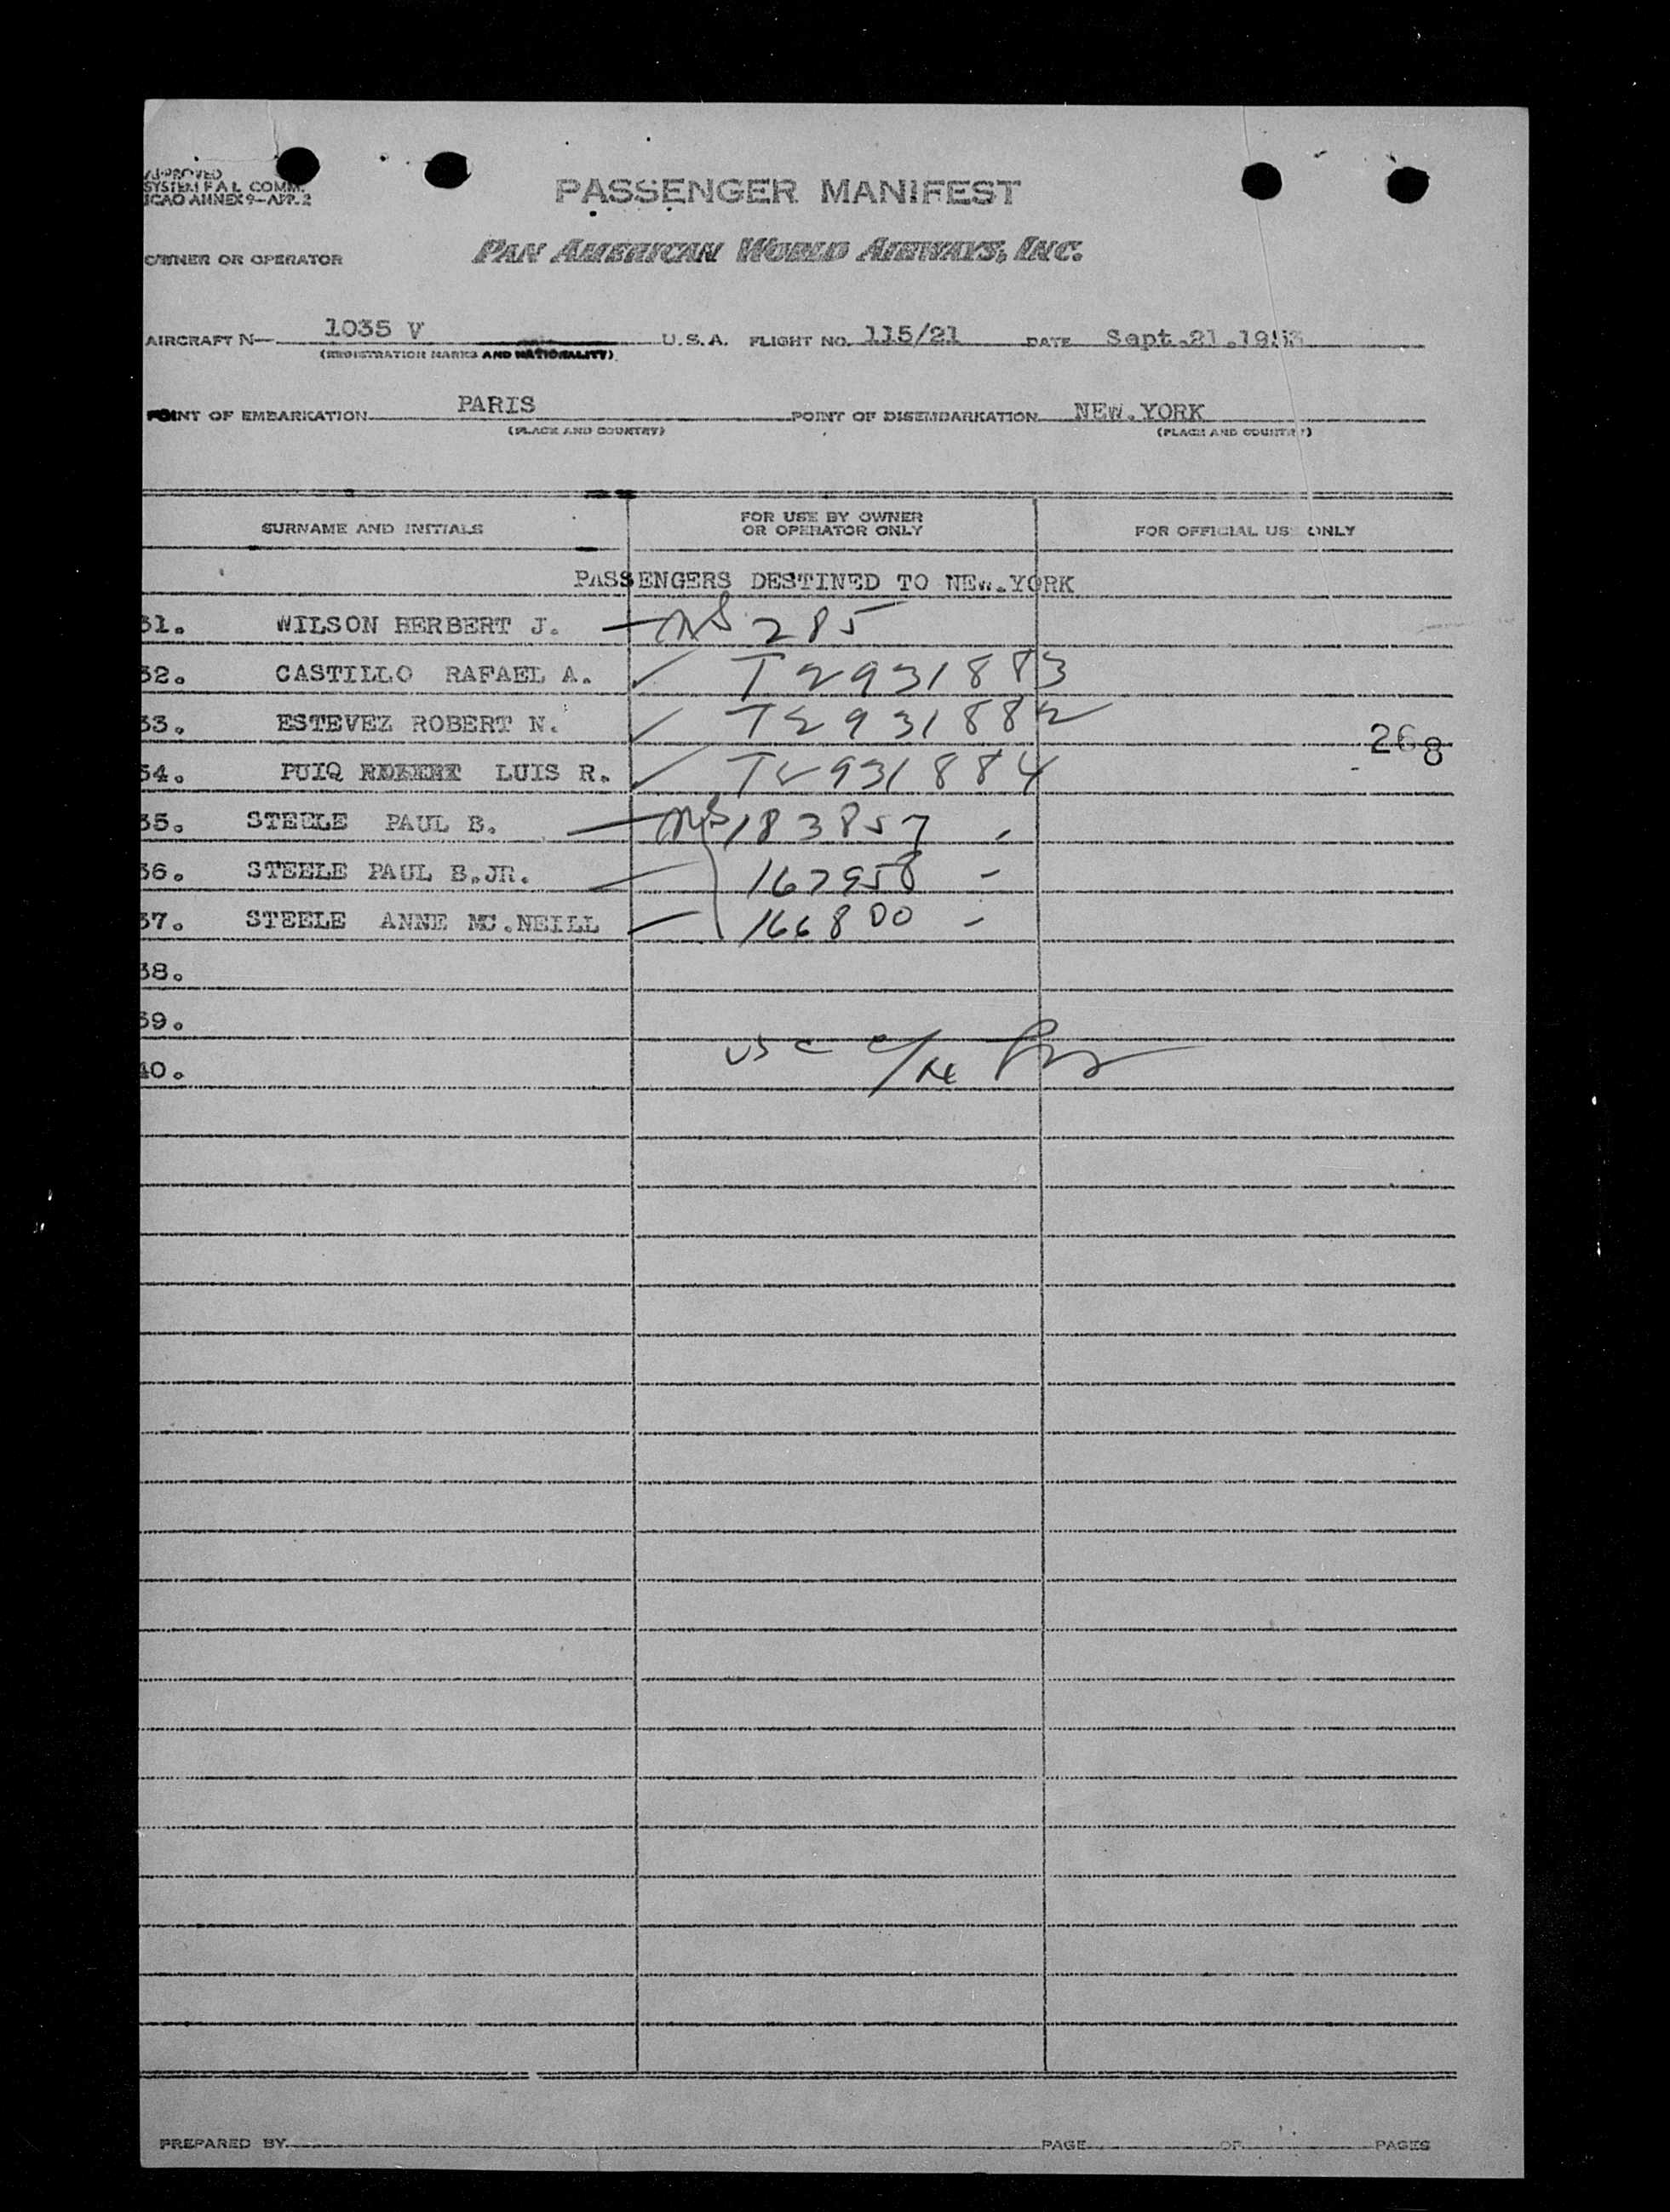 APPROVED
SYSTEM F A L COMM.
ICAO ANNEX 9-APP. 2
PASSENGER MANIFEST
OWNER OR OPERATOR PAN AMERICAN WORLD AIRWAYS, INC.
AIRCRAFT N- 1035 V U.S.A. FLIGHT NO. 115/21 DATE Sept.21.195
(REGISTRATION MARKS AND NATIONALITY)
POINT OF EMBARKATION PARIS POINT OF DISEMBARKATION NEW.YORK
(PLACE AND COUNTRY) (PLACE AND COUNTRY)
SURNAME AND INITIALS FOR USE BY OWNER OR OPERATOR ONLY FOR OFFICIAL USE ONLY
PASSENGERS DESTINED TO NEW.YORK
31. WILSON HERBERT J. 285
32. CASTILLO RAFAEL A. ✓ T2931883
33. ESTEVEZ ROBERT N. ✓ T2931882
268
34. PUIQ LUIS R. ✓ T2931884
35. STEELE PAUL B. 183857
36. STEELE PAUL B.JR. 167958
37. STEELE ANNE MC.NEILL 166800
38.
39.
40.
USC
PREPARED BY PAGE OF PAGES